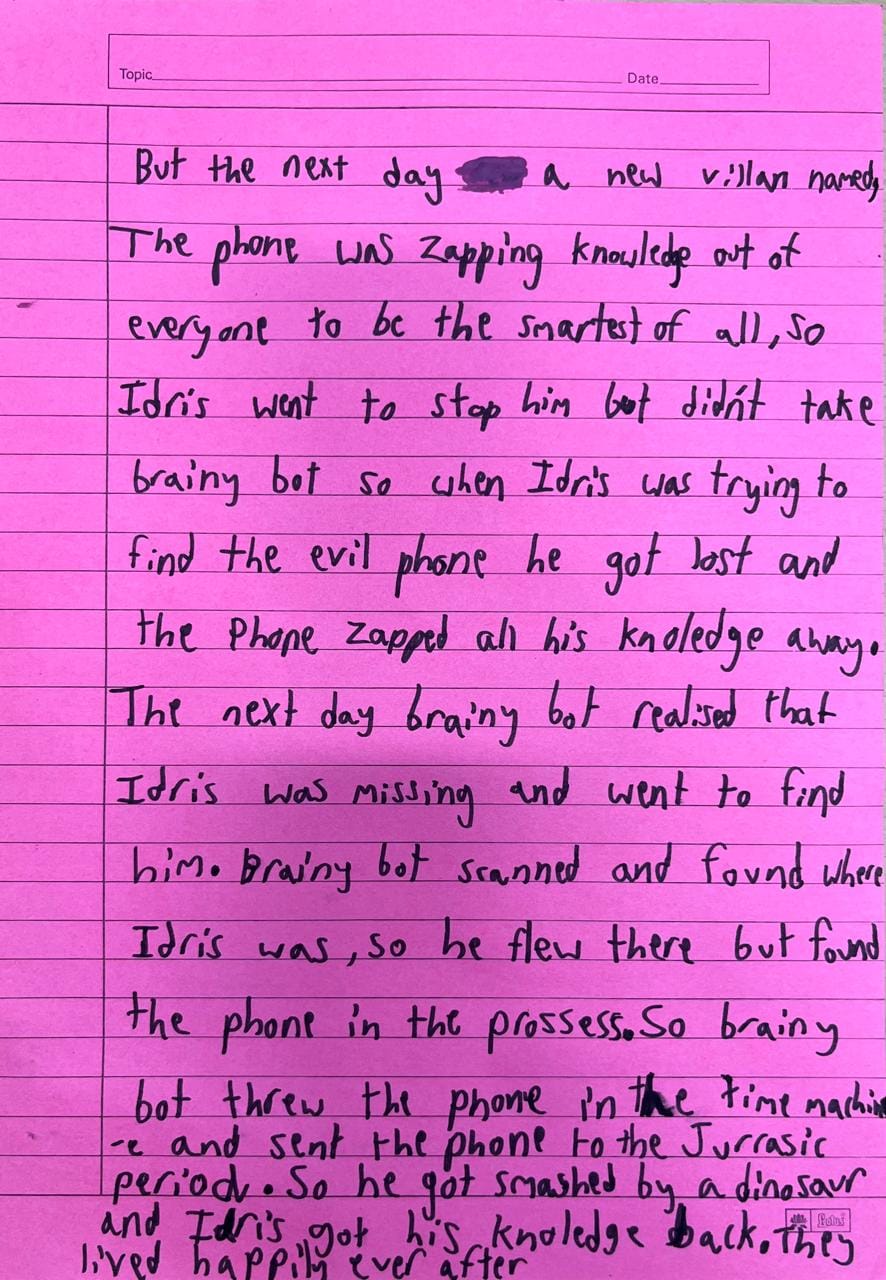 Topic Date
But the next day a new villan named,
The phone was zapping knowledge out of
everyone to be the smartest of all, so
Idris went to stop him but didn't take
brainy bot so when Idris was trying to
find the evil phone he got lost and
the Phone zapped all his knoledge away.
The next day brainy bot realised that
Idris was missing and went to find
him. Brainy bot scanned and found where
Idris was, so he flew there but found
the phone in the prossess. So brainy
bot threw the phone in the time machin
-e and sent the phone to the Jurrasic
period. So he got smashed by a dinosaur
and Idris got his knoledge back. They
lived happily ever after